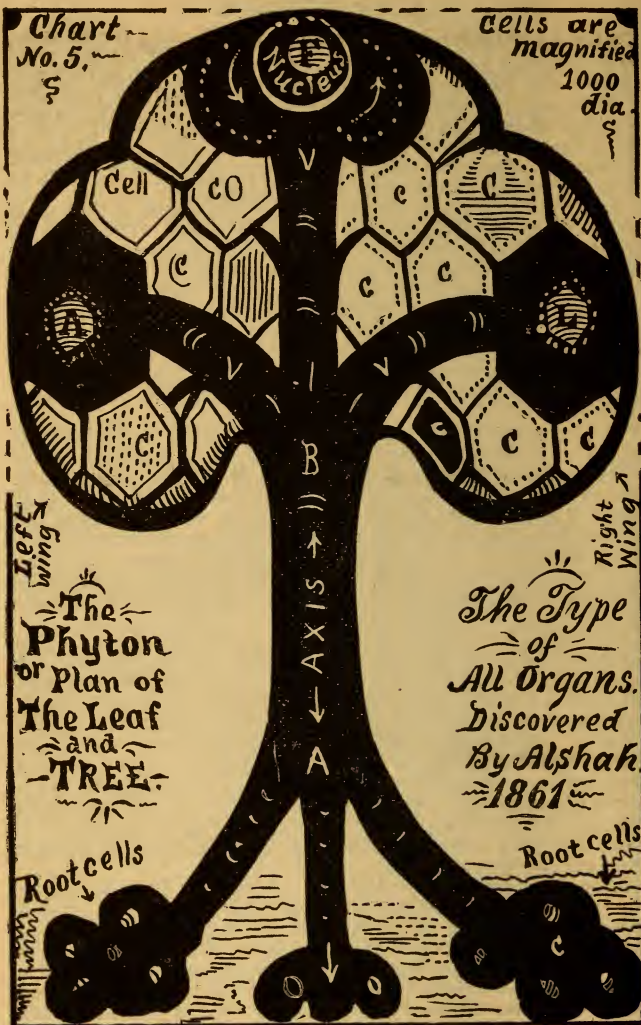 Chart
No. 5.
Cells are
magnified
1000
dia.
Nucleus
V
Cell
CO
C
C
C
C
C
C
A
V
V
C
C
C
C
B
AXIS
A
Left
Wing
Right
Wing
The
Phyton
or Plan of
The Leaf
and
TREE.
The Type
of
All Organs.
Discovered
By Alshah
1861
Root cells
Root cells
C